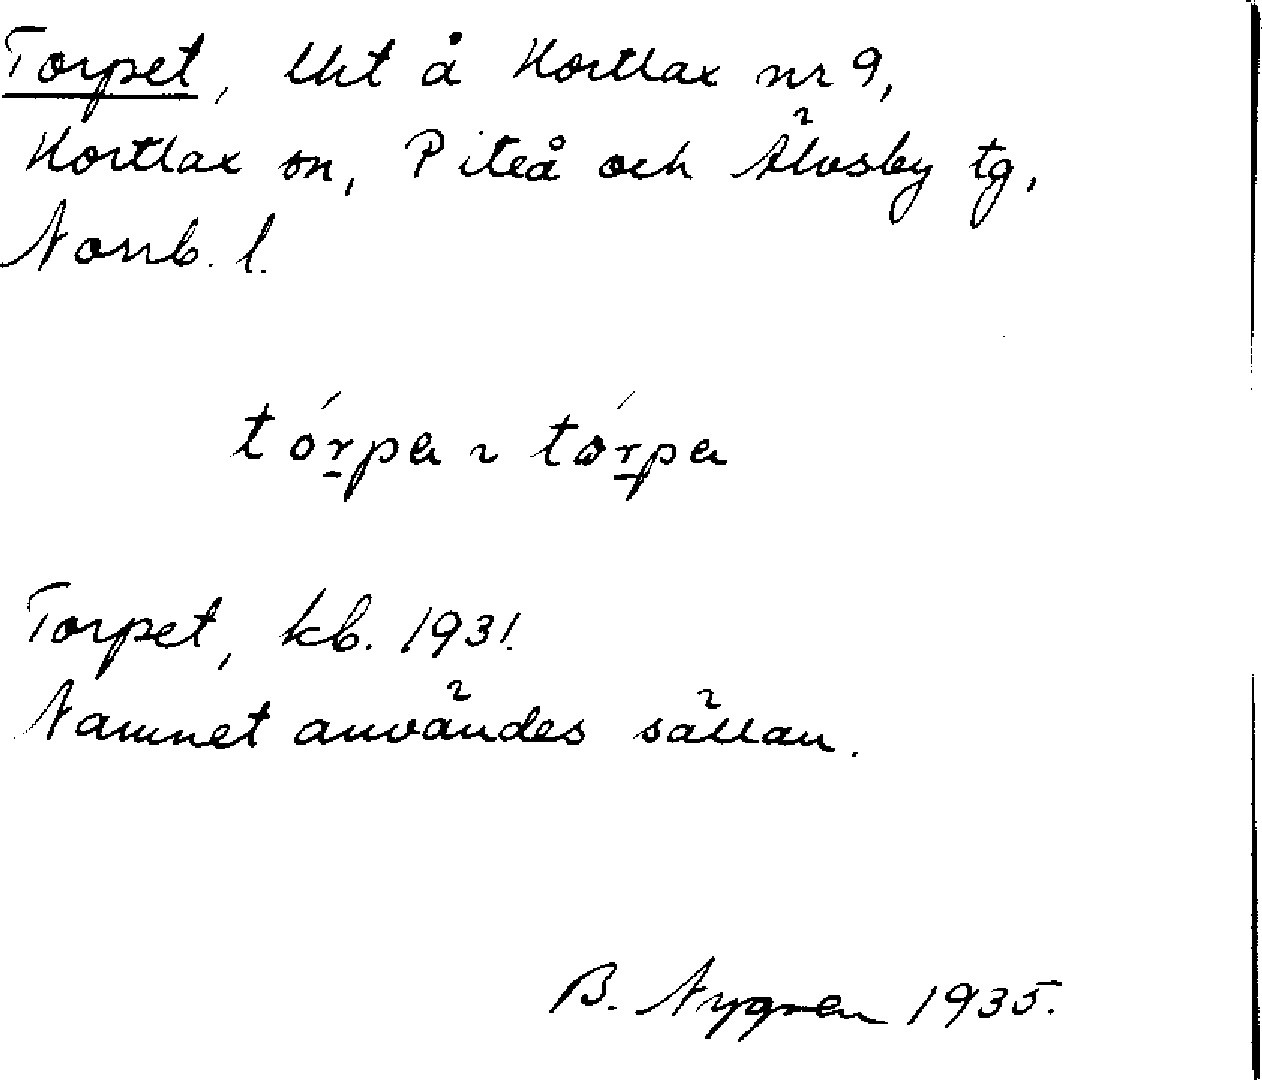 Torpet, lht å Hortlax nr 9,
Hortlax sn, Piteå och Älvsby tg,
Norrb. l.
tórpa ~ tórpa
Torpet, kb. 1931.
Namnet användes sällan.
B. Nygren 1935.